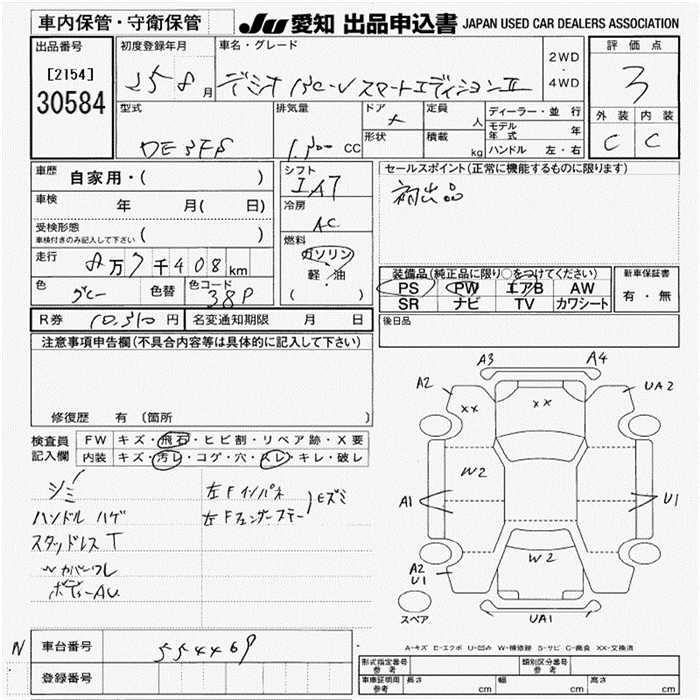 車内保管・守衛保管
JU 愛知 出品申込書 JAPAN USED CAR DEALERS ASSOCIATION
出品番号
[2154]
30584
初度登録年月
25 8月
車名・グレード
デミオ 13C-V スマートエディションII
2WD
・
4WD
評価点
3
外装 内装
C C
型式
DE3FS
排気量
1,300 CC
ドア
形状
定員 人
積載 kg
ディーラー・並行
モデル年式 年
ハンドル 左・右
車歴
自家用・( )
車検 年 月( 日)
受検形態
車検付きのみ記入して下さい ( )
走行 8万7千408km
色 グレー 色替 色コード 38P
シフト
IA7
冷房
AC
燃料
ガソリン
軽・油
( )
セールスポイント(正常に機能するものに限ります)
初出品
装備品(純正品に限り○をつけてください)
PS PW エアB AW
SR ナビ TV カワシート
新車保証書
有・無
後日品
R券 10,310 円 名変通知期限 月 日
注意事項申告欄(不具合内容等は具体的に記入して下さい)
修復歴 有 〔箇所 〕
検査員記入欄
FW キズ・飛石・ヒビ割・リペア跡・X要
内装 キズ・汚レ・コゲ・穴・スレ・キレ・破レ
シミ
ハンドル ハゲ
スタッドレス T
〃 カバーワレ
ボディーAU
左Fインパネ
左Fフェンダーステー
ヒズミ
A3 A4
A2 XX XX UA2
W2
A1 U1
W2
A2
U1
UA1
スペア
A-キズ E-エクボ U-凹み W-補修跡 S-サビ C-腐食 XX-交換済
N 車台番号 554469
登録番号
形式指定番号
参考
類別区分番号
参考
車庫証明用
参考
長さ cm 幅 cm 高さ cm